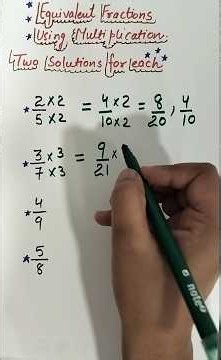 Equivalent Fractions
Using Multiplication
Two Solutions for each
* 2×2/5×2 = 4×2/10×2 = 8/20, 4/10
* 3×3/7×3 = 9×/21
* 4/9
* 5/8